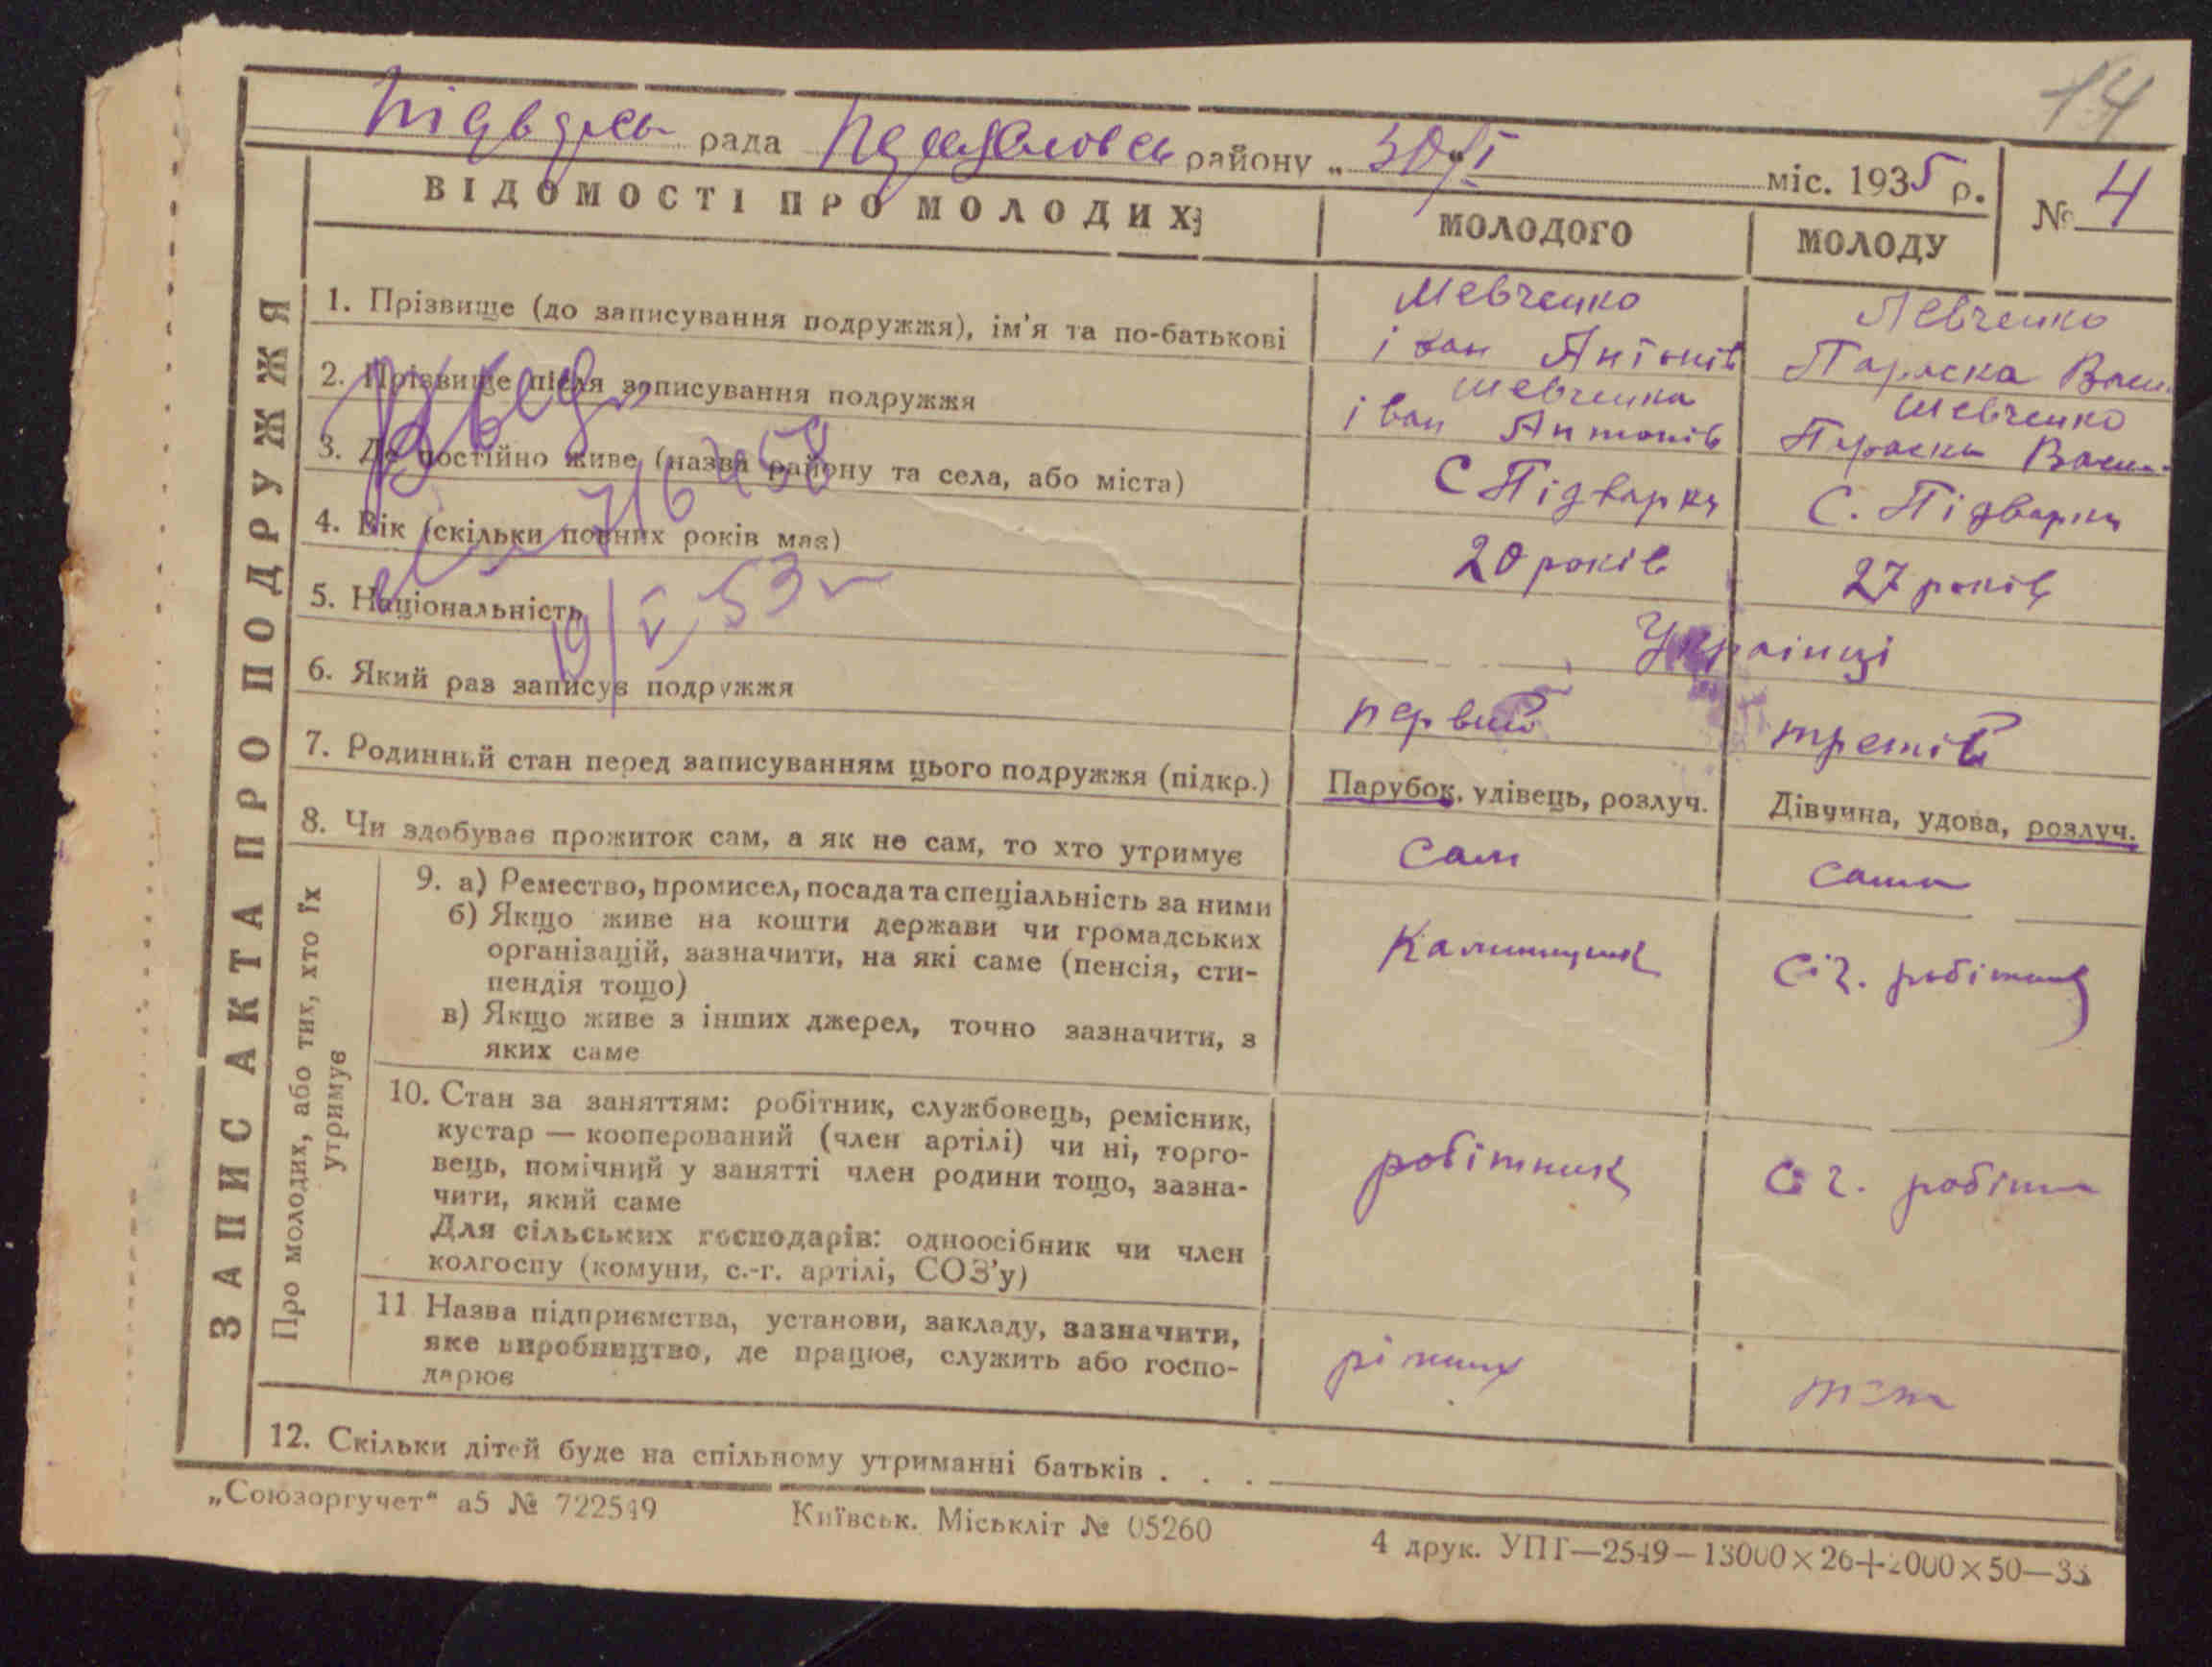 14
рада району „ 30/I міс. 1935 р.
№ 4
ЗАПИС АКТА ПРО ПОДРУЖЖЯ
ВІДОМОСТІ ПРО МОЛОДИХ:
МОЛОДОГО
МОЛОДУ
1. Прізвище (до записування подружжя), ім'я та по-батькові
Шевченко
іван Антонів
Левченко
Параска Васи
2. Прізвище після записування подружжя
Шевченка
іван Антонів
Шевченко
Параска Васи
3. Де постійно живе (назва району та села, або міста)
С Підварки
С. Підварки
4. Вік (скільки повних років має)
20 років
27 років
5. Національність
Українці
19/V 53
6. Який раз записує подружжя
первий
третій
7. Родинный стан перед записуванням цього подружжя (підкр.)
Парубок, удівець, розлуч.
Дівчина, удова, розлуч.
8. Чи здобуває прожиток сам, а як не сам, то хто утримує
Сам
сама
Про молодих, або тих, хто їх
утримує
9. а) Ремество, промисел, посада та спеціальність за ними
б) Якщо живе на кошти держави чи громадських
організацій, зазначити, на які саме (пенсія, сти-
пендія тощо)
в) Якщо живе з інших джерел, точно зазначити, з
яких саме
10. Стан за заняттям: робітник, службовець, ремісник,
кустар — кооперований (член артілі) чи ні, торго-
вець, помічний у занятті член родини тощо, зазна-
чити, який саме
Для сільських господарів: одноосібник чи член
колгоспу (комуни, с.-г. артілі, СОЗ'у)
робітник
11 Назва підприємства, установи, закладу, зазначити,
яке виробництво, де працює, служить або госпо-
дарює
12. Скільки дітей буде на спільному утриманні батьків . . .
„Союзоргучет“ а5 № 722549
Київськ. Міськліт № 05260
4 друк. УПГ—2549—13000×26+2000×50—33